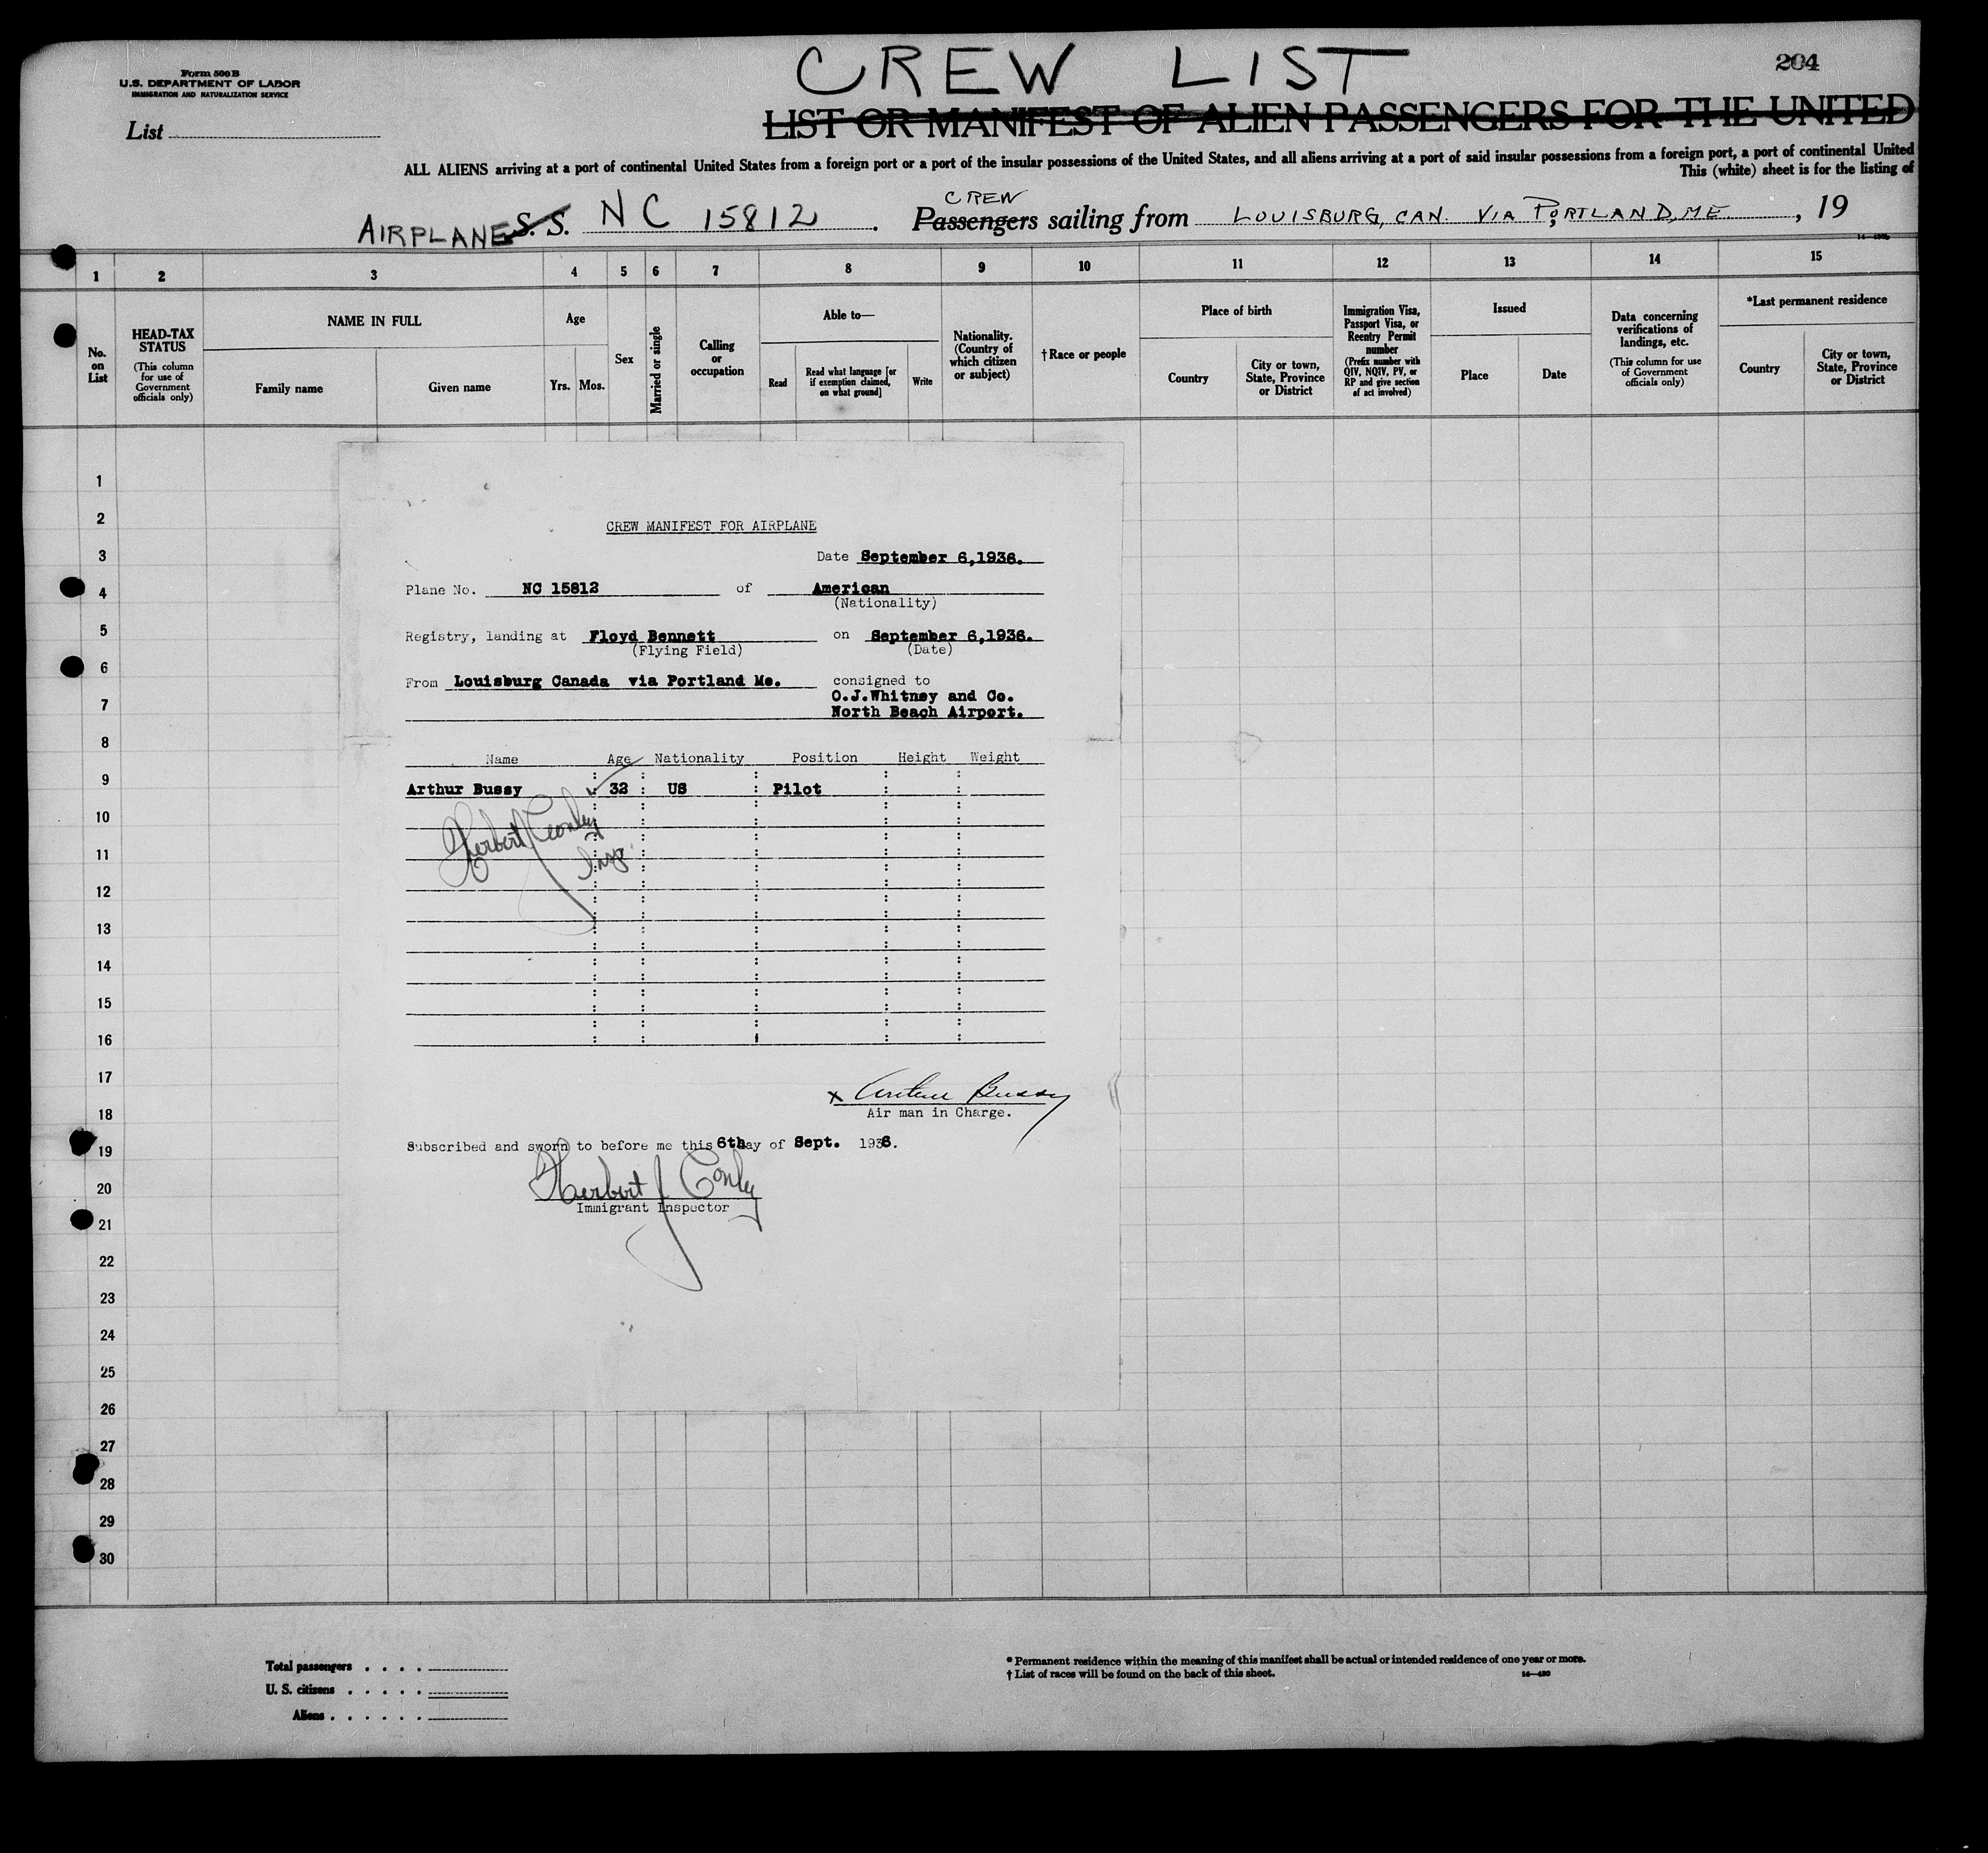 CREW LIST
204
Form 500B
U.S. DEPARTMENT OF LABOR
IMMIGRATION AND NATURALIZATION SERVICE
List
LIST OR MANIFEST OF ALIEN PASSENGERS FOR THE UNITED
ALL ALIENS arriving at a port of continental United States from a foreign port or a port of the insular possessions of the United States, and all aliens arriving at a port of said insular possessions from a foreign port, a port of continental United
This (white) sheet is for the listing of
AIRPLANE S. S. NC 15812. CREW Passengers sailing from LOUISBURG, CAN. VIA PORTLAND, ME. , 19
1 2 3 4 5 6 7 8 9 10 11 12 13 14 15
No. on List
HEAD-TAX STATUS
(This column for use of Government officials only)
NAME IN FULL
Family name
Given name
Age
Yrs. Mos.
Sex
Married or single
Calling or occupation
Able to—
Read
Read what language [or if exemption claimed, on what ground]
Write
Nationality. (Country of which citizen or subject)
†Race or people
Place of birth
Country
City or town, State, Province or District
Immigration Visa, Passport Visa, or Reentry Permit number
(Prefix number with QIV, NQIV, PV, or RP and give section of act involved)
Issued
Place
Date
Data concerning verifications of landings, etc.
(This column for use of Government officials only)
*Last permanent residence
Country
City or town, State, Province or District
1
2
3
4
5
6
7
8
9
10
11
12
13
14
15
16
17
18
19
20
21
22
23
24
25
26
27
28
29
30
CREW MANIFEST FOR AIRPLANE
Date September 6,1936.
Plane No. NC 15812 of American
(Nationality)
Registry, landing at Floyd Bennett on September 6,1936.
(Flying Field) (Date)
From Louisburg Canada via Portland Me. consigned to
O.J.Whitney and Co.
North Beach Airport.
Name Age Nationality Position Height Weight
Arthur Bussy 32 US Pilot
Herbert J Conley
Insp.
x Arthur Bussy
Air man in Charge.
Subscribed and sworn to before me this 6th day of Sept. 1936.
Herbert J Conley
Immigrant Inspector
Total passengers . . . .
U. S. citizens . . . . .
Aliens . . . . . .
* Permanent residence within the meaning of this manifest shall be actual or intended residence of one year or more.
† List of races will be found on the back of this sheet.